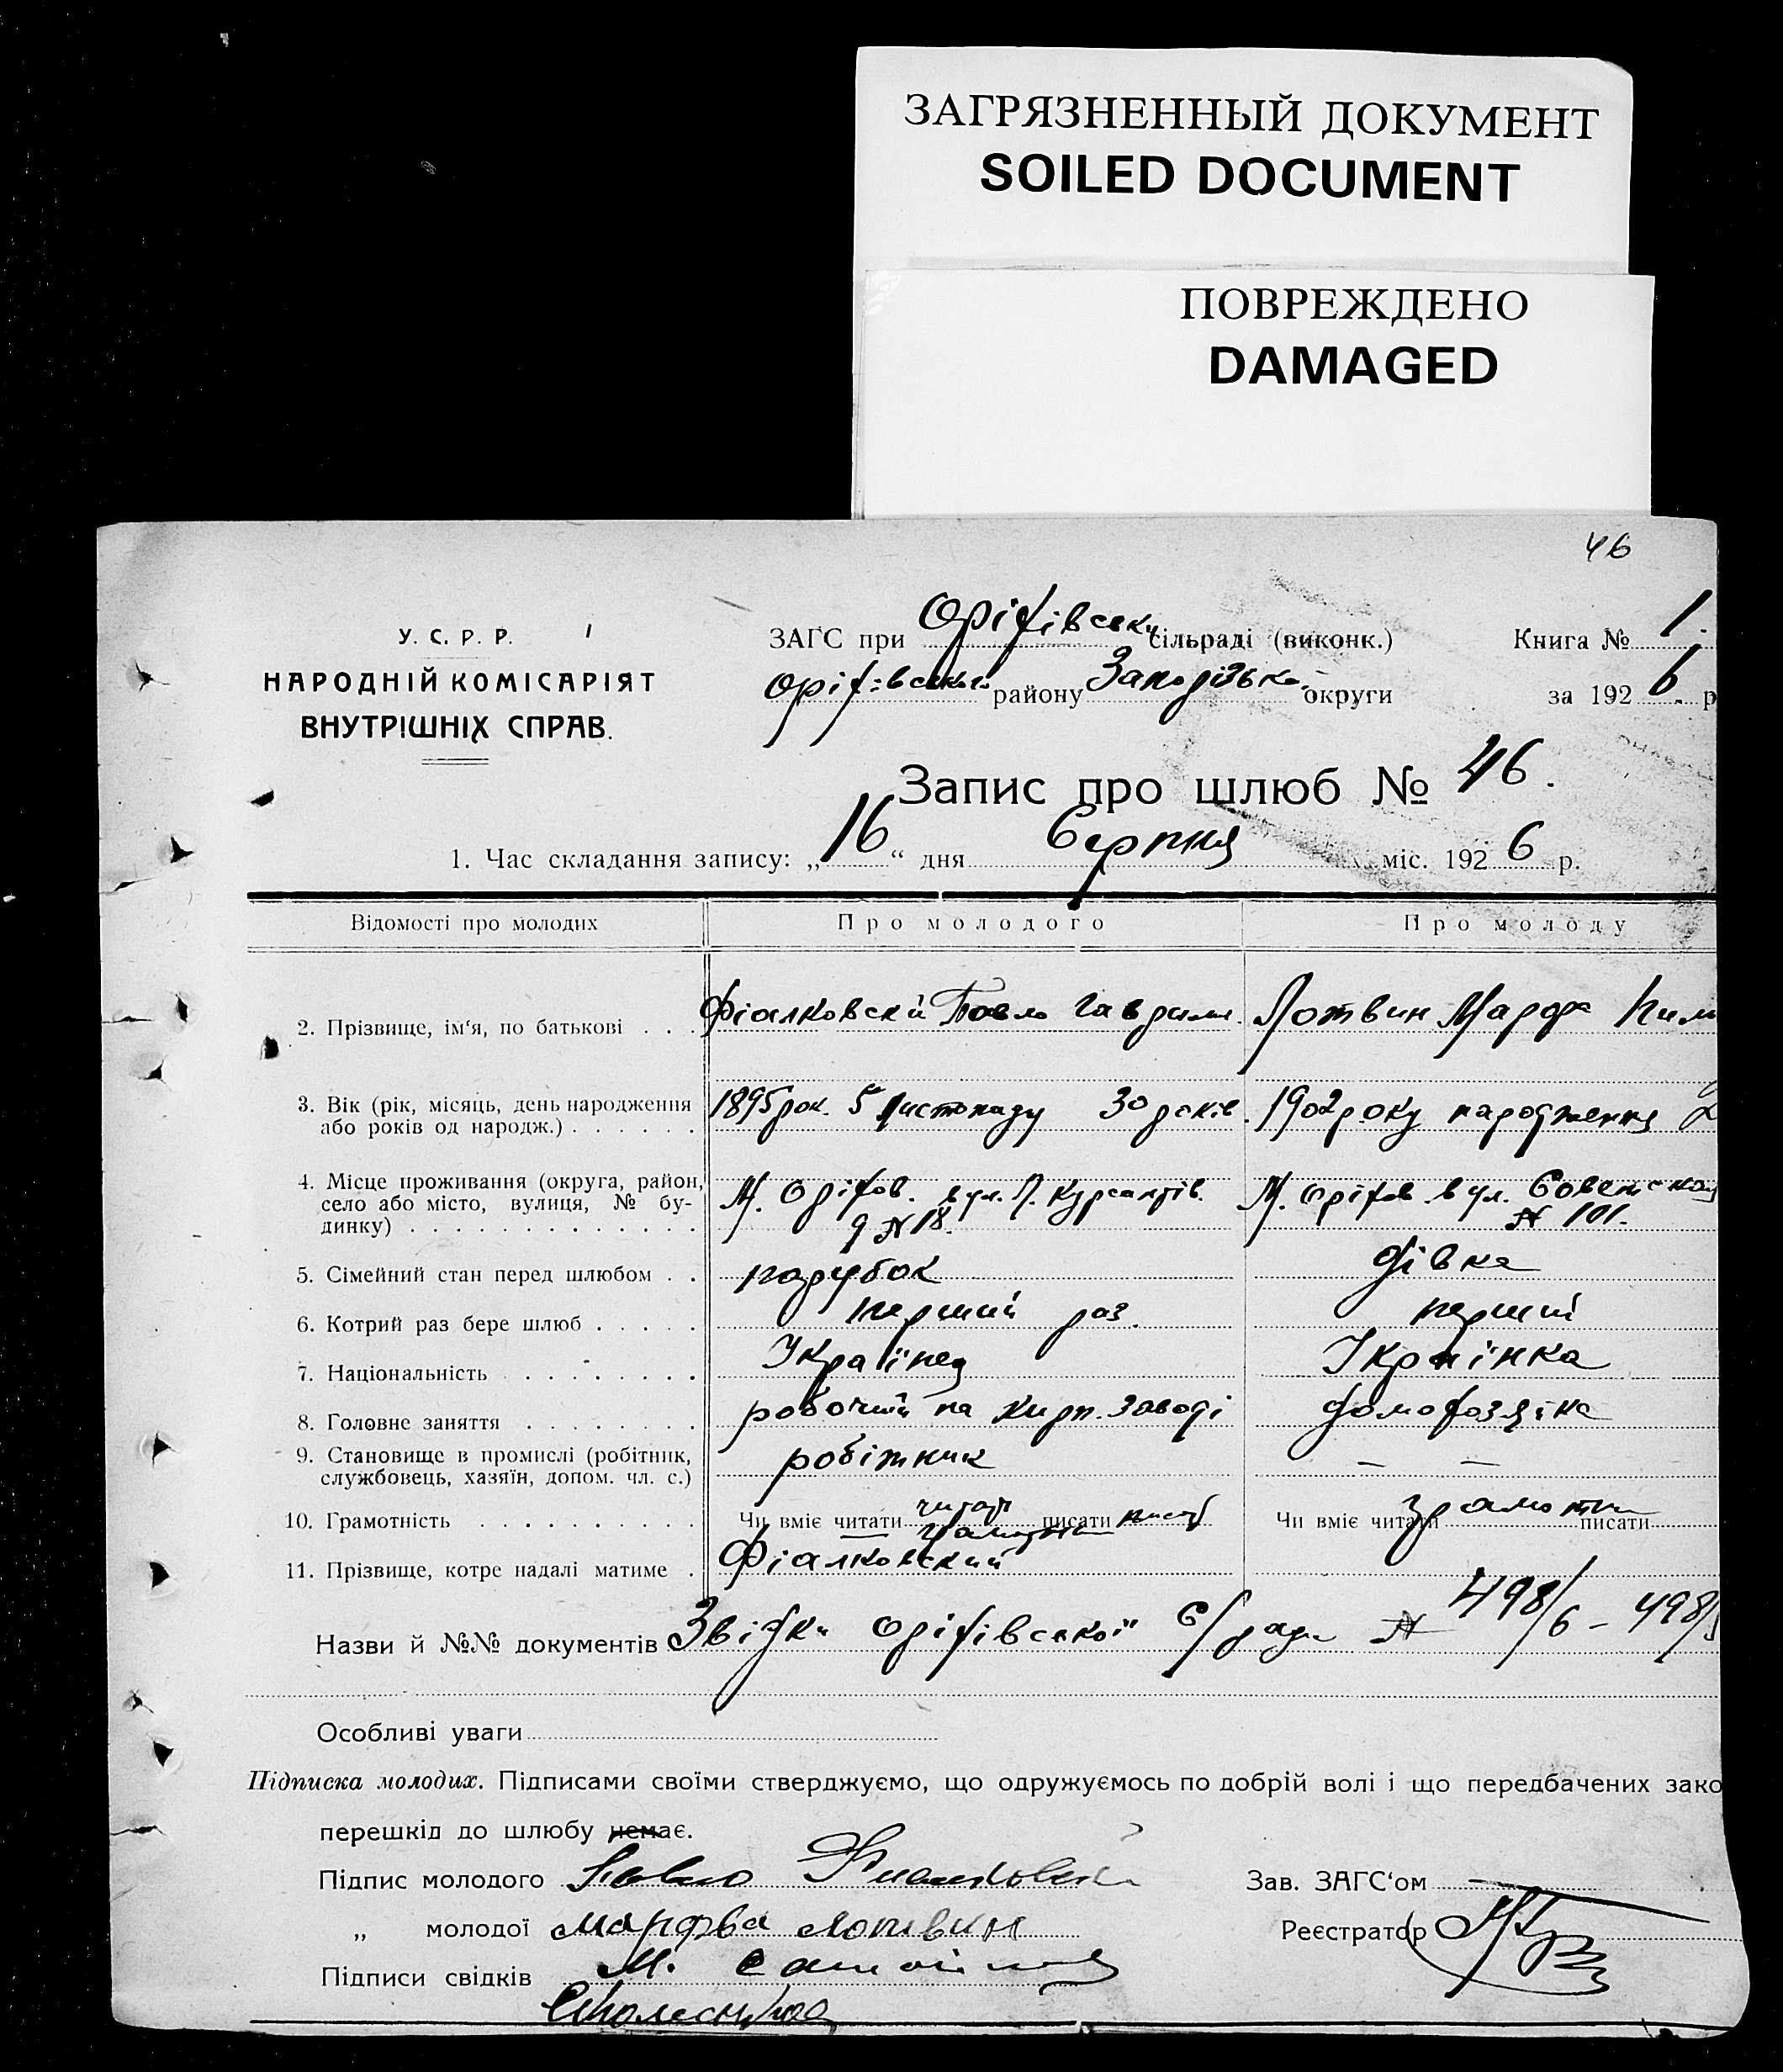 ЗАГРЯЗНЕННЫЙ ДОКУМЕНТ
SOILED DOCUMENT
ПОВРЕЖДЕНО
DAMAGED
46
У. С. Р. Р.
НАРОДНІЙ КОМІСАРІЯТ
ВНУТРІШНІХ СПРАВ.
ЗАГС при Оріхівськ сільраді (виконк.) Книга № 1.
Оріхівського району Запорізько округи за 1926 р
Запис про шлюб № 46.
1. Час складання запису: „16“ дня Серпня міс. 1926 р.
Відомості про молодих Про молодого Про молоду
2. Прізвище, ім‘я, по батькові . . . Фіалковскй Павло Гаврилл. Лотвин Марфа
3. Вік (рік, місяць, день народження 1895 рок. 5 Листопаду 30 років. 1902 року народження 2
або років од народж.) . . . . . .
4. Місце проживання (округа, район, М. Оріхов. вул. Л. Курсантів. М. Оріхов вул. Советская
село або місто, вулиця, № бу- № 18. № 101.
динку) . . . . . . . . . . . . .
5. Сімейний стан перед шлюбом . . парубок дівка
6. Котрий раз бере шлюб . . . . . перший раз. перший
7. Національність . . . . . . . . Українец Українка
8. Головне заняття . . . . . . . . робочий на кирп. заводі домохозяіка
9. Становище в промислі (робітник, робітник — —
службовець, хазяїн, допом. чл. с.)
10. Грамотність . . . . . . . . . . Чи вміє читати читат писати Чи вміє читати грамотн писати
11. Прізвище, котре надалі матиме . Фіалковский
Назви й №№ документів Звідки Оріхівської С/ради № 498/6 – 498/
Особливі уваги
Підписка молодих. Підписами своїми стверджуємо, що одружуємось по добрій волі і що передбачених зако
перешкід до шлюбу немає.
Підпис молодого Павло Зав. ЗАГС‘ом
„ молодої Марфва Лотвин Реєстратор
Підписи свідків М.